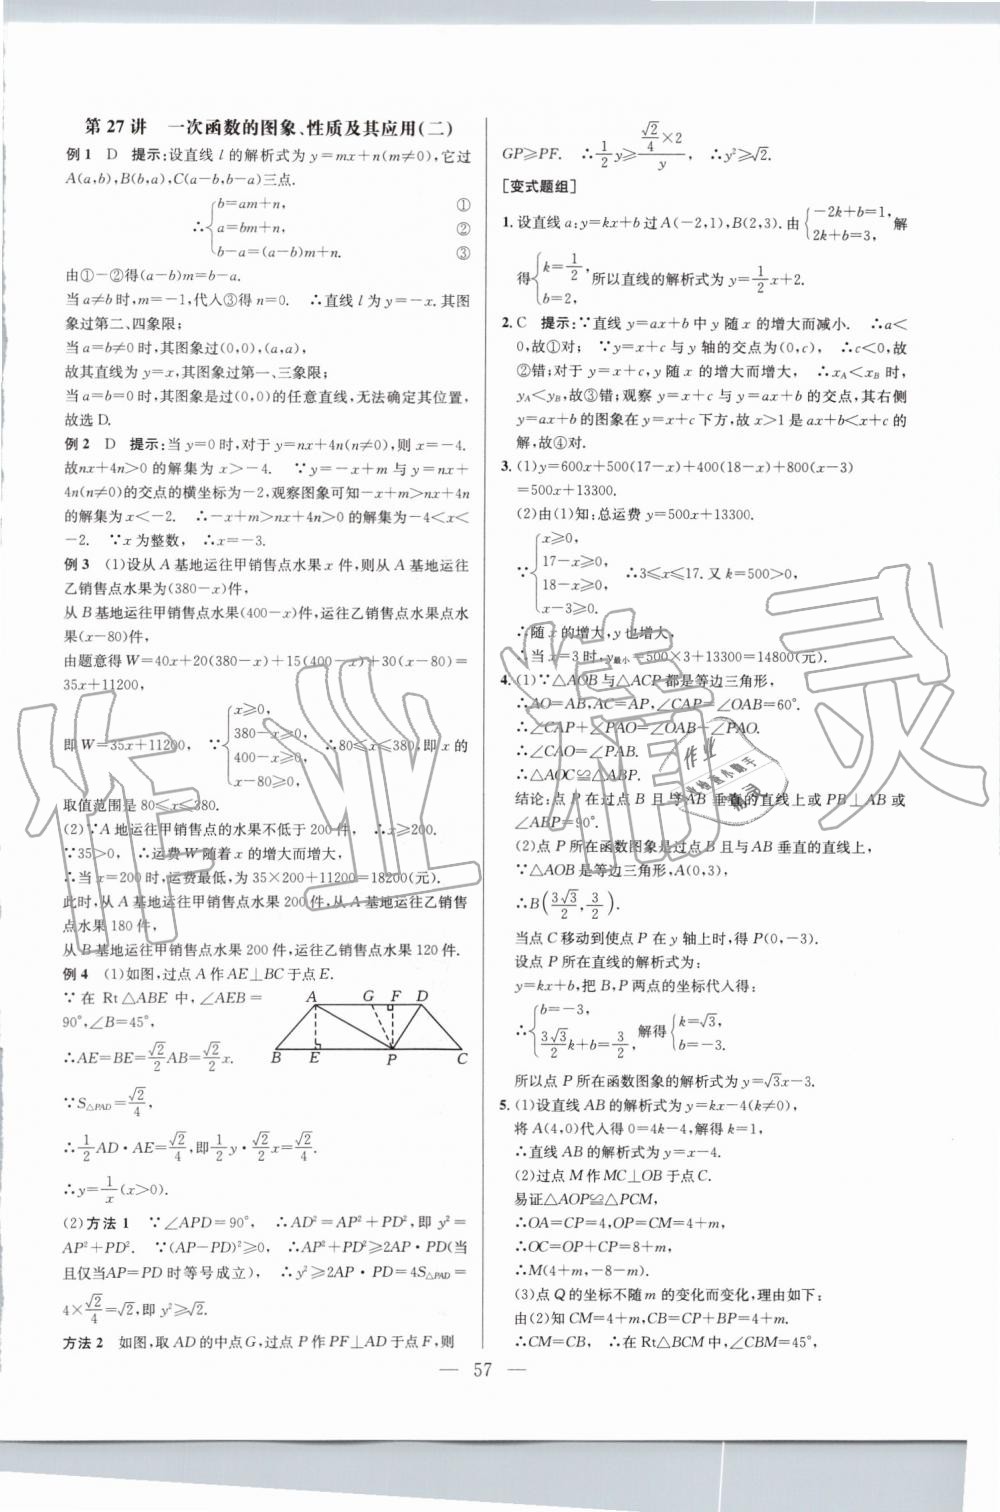 第27讲 一次函数的图象、性质及其应用(二)
例1 D 提示:设直线 l 的解析式为 y=mx+n(m≠0),它过
A(a,b),B(b,a),C(a-b,b-a)三点.
∴{b=am+n, ①
a=bm+n, ②
b-a=(a-b)m+n. ③
由①-②得(a-b)m=b-a.
当a≠b时,m=-1,代入③得n=0. ∴直线 l 为y=-x.其图
象过第二、四象限;
当a=b≠0时,其图象过(0,0),(a,a),
故其直线为y=x,其图象过第一、三象限;
当a=b=0时,其图象是过(0,0)的任意直线,无法确定其位置,
故选D.
例2 D 提示:当y=0时,对于y=nx+4n(n≠0),则x=-4.
故nx+4n>0的解集为x>-4. ∵y=-x+m与y=nx+
4n(n≠0)的交点的横坐标为-2,观察图象可知-x+m>nx+4n
的解集为x<-2. ∴-x+m>nx+4n>0的解集为-4<x<
-2. ∵x为整数, ∴x=-3.
例3 (1)设从A基地运往甲销售点水果x件,则从A基地运往
乙销售点水果为(380-x)件,
从B基地运往甲销售点水果(400-x)件,运往乙销售点水果点水
果(x-80)件,
由题意得W=40x+20(380-x)+15(400-x)+30(x-80)=
35x+11200,
即W=35x+11200. ∵{x≥0,
380-x≥0,
400-x≥0,
x-80≥0. ∴80≤x≤380,即x的
取值范围是80≤x≤380.
(2)∵A地运往甲销售点的水果不低于200件, ∴x≥200.
∵35>0, ∴运费W随着x的增大而增大,
∴当x=200时,运费最低,为35×200+11200=18200(元).
此时,从A基地运往甲销售点水果200件,从A基地运往乙销售点
水果180件,
从B基地运往甲销售点水果200件,运往乙销售点水果120件.
例4 (1)如图,过点A作AE⊥BC于点E.
∵在Rt△ABE中,∠AEB=
90°,∠B=45°,
∴AE=BE=√2/2 AB=√2/2 x.
∵S△PAD=√2/4,
∴1/2 AD·AE=√2/4,即1/2 y·√2/2 x=√2/4.
∴y=1/x (x>0).
A G F D
B E P C
(2)方法1 ∵∠APD=90°, ∴AD²=AP²+PD²,即y²=
AP²+PD². ∵(AP-PD)²≥0, ∴AP²+PD²≥2AP·PD(当
且仅当AP=PD时等号成立), ∴y²≥2AP·PD=4S△PAD=
4×√2/4=√2,即y²≥√2.
方法2 如图,取AD的中点G,过点P作PF⊥AD于点F,则
GP≥PF. ∴1/2 y≥(√2/4×2)/y, ∴y²≥√2.
[变式题组]
1. 设直线a:y=kx+b过A(-2,1),B(2,3).由{-2k+b=1,
2k+b=3, 解
得{k=1/2,
b=2, 所以直线的解析式为y=1/2 x+2.
2. C 提示:∵直线y=ax+b中y随x的增大而减小. ∴a<
0,故①对; ∵y=x+c与y轴的交点为(0,c), ∴c<0,故
②错;对于y=x+c,y随x的增大而增大, ∴xA<xB时,
yA<yB,故③错;观察y=x+c与y=ax+b的交点,其右侧
y=ax+b的图象在y=x+c下方,故x>1是ax+b<x+c的
解,故④对.
3. (1)y=600x+500(17-x)+400(18-x)+800(x-3)
=500x+13300.
(2)由(1)知:总运费y=500x+13300.
∵{x≥0,
17-x≥0,
18-x≥0,
x-3≥0. ∴3≤x≤17.又k=500>0,
∴随x的增大,y也增大,
∴当x=3时,y最小=500×3+13300=14800(元).
4. (1)∵△AOB与△ACP都是等边三角形,
∴AO=AB,AC=AP,∠CAP=∠OAB=60°.
∴∠CAP+∠PAO=∠OAB+∠PAO.
∴∠CAO=∠PAB.
∴△AOC≌△ABP.
结论:点P在过点B且与AB垂直的直线上或PB⊥AB或
∠ABP=90°.
(2)点P所在函数图象是过点B且与AB垂直的直线上,
∵△AOB是等边三角形,A(0,3),
∴B(3√3/2,3/2).
当点C移动到使点P在y轴上时,得P(0,-3).
设点P所在直线的解析式为:
y=kx+b,把B,P两点的坐标代入得:
∴{b=-3,
3√3/2 k+b=3/2 解得{k=√3,
b=-3.
所以点P所在函数图象的解析式为y=√3x-3.
5. (1)设直线AB的解析式为y=kx-4(k≠0),
将A(4,0)代入得0=4k-4,解得k=1,
∴直线AB的解析式为y=x-4.
(2)过点M作MC⊥OB于点C.
易证△AOP≌△CPM,
∴OA=CP=4,OP=CM=4+m,
∴OC=OP+CP=8+m,
∴M(4+m,-8-m).
(3)点Q的坐标不随m的变化而变化,理由如下:
由(2)知CM=4+m,BC=OP+CP-BO=4+m,
∴CM=CB. ∴在Rt△BCM中,∠CBM=45°,
— 57 —
作业精灵